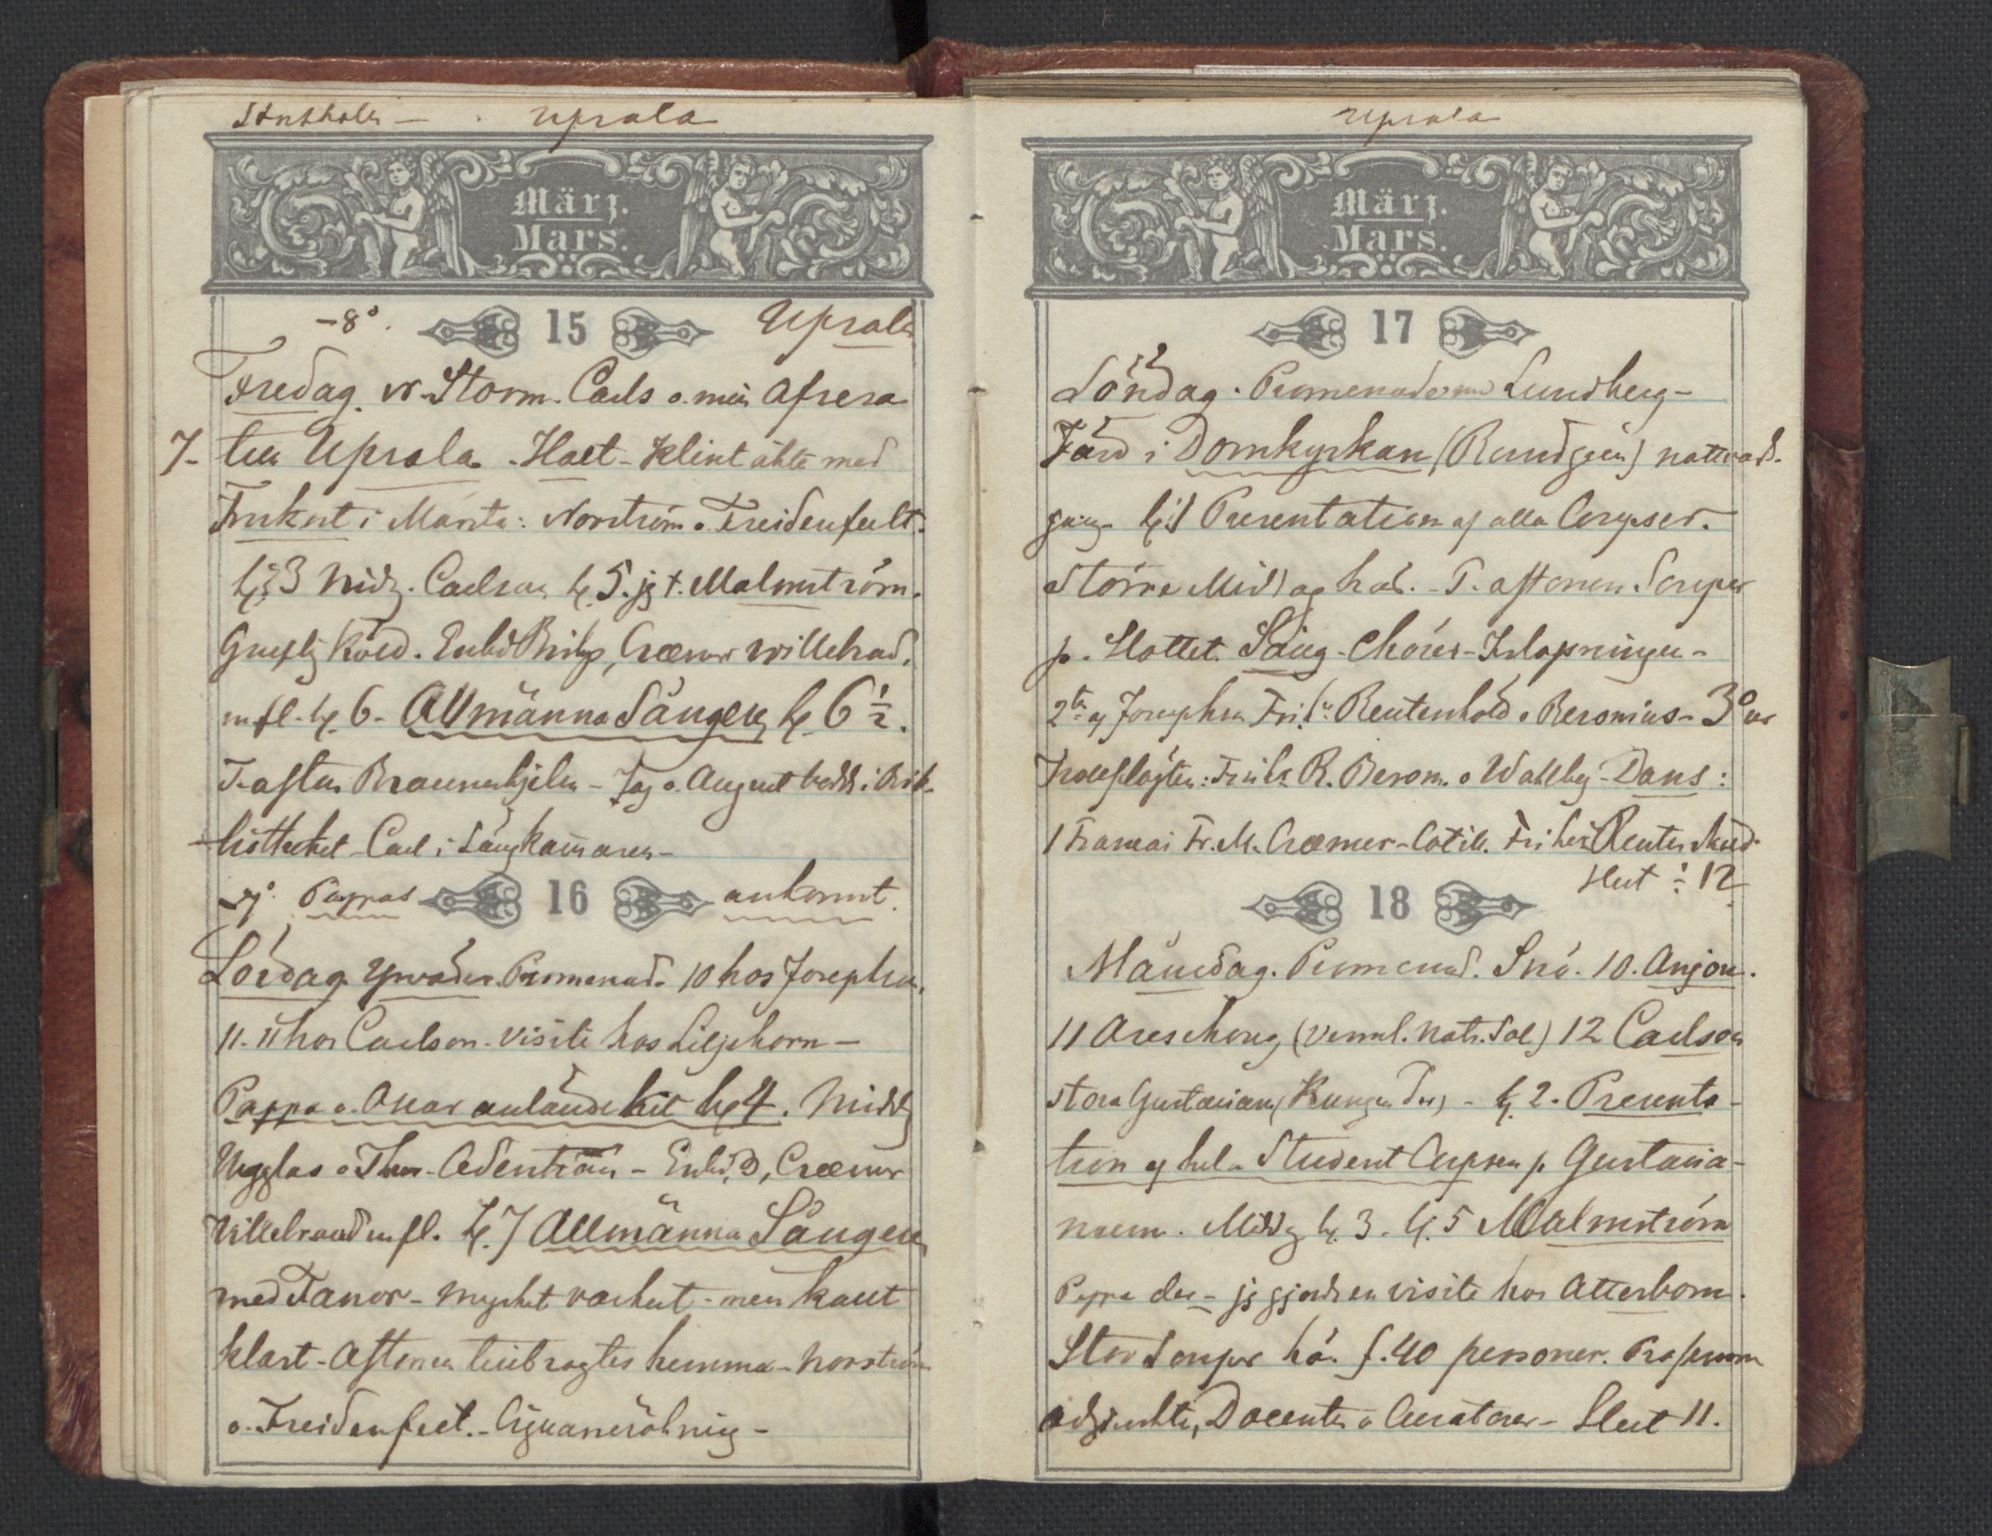 Stockholm – Upsala
März.
Mars.
–8°. 15 Upsala
Fredag. Storm. Carls o. min afresa
7 – till Upsala. Holst – Klint åkte med
Frukost i Märsta: Norström o. Freidenfelt.
kl. 3 Midg. Carlson kl. 5. jg t. Malmström.
Grufligt Köld. Cræmer Willebrad,
m fl. kl. 6 – Allmänna Sången kl. 6 ½.
T. aften Braunerhjelm – Jag o. August i Bib-
liotheket – Carl i
Pappas 16 ankomst.
Lördag. Yrväder. Promenad. 10 hos Josephson,
11. 11 hos Carlson – visite hos Liljehorn –
Pappa o. Oscar anlände hit kl. 4. Midd
Ugglas o Cræmer
Willebrand m fl. kl. 7 Allmänna Sången
med Fanor – Mycket vackert – men kallt
klart – Aftonen tillbragtes hemma – Norström
o. Freidenfelt. – Cigarrrökning –
Upsala
März.
Mars.
17
Söndag. Promenad med Lundberg –
Färd i Domkyrkan nattvards-
gång – kl. 1 Presentation af alla Corpser.
Större Middag här. – T. aftonen Souper
p. Slottet. Sång – Chörer –
2 af Josephson Frih. Reuterskold o Beronius – 3° ur
Trollflöjten: Frih. R. Beron. o Wahlby – Dans:
1 Francai Fr. M. Cræmer – Cotill. Friher Reuterskold
Slut ½ 12
18
Måndag. Promenad. Snö. 10. Anjou.
11 Areschoug 12 Carlson
stora Gustavian. – kl. 2. Presenta-
tion af hela Student Corpsen p. Gustavia-
num. Midg kl. 3. kl. 5 Malmström
Pappa der – jg gjorde en visite hos Atterbom.
Stor Souper hä. f. 40 personer. Professorer
adjunkter, Docenter o Curatorer – Slut 11.